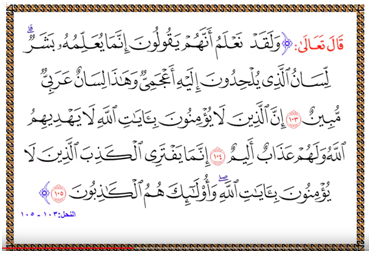 قَالَ تَعَالَىٰ: ﴿ وَلَقَدْ نَعْلَمُ أَنَّهُمْ يَقُولُونَ إِنَّمَا يُعَلِّمُهُۥ بَشَرٌۗ
لِّسَانُ ٱلَّذِى يُلْحِدُونَ إِلَيْهِ أَعْجَمِىٌّ وَهَٰذَا لِسَانٌ عَرَبِىٌّ
مُّبِينٌ ١٠٣ إِنَّ ٱلَّذِينَ لَا يُؤْمِنُونَ بِـَٔايَٰتِ ٱللَّهِ لَا يَهْدِيهِمُ
ٱللَّهُ وَلَهُمْ عَذَابٌ أَلِيمٌ ١٠٤ إِنَّمَا يَفْتَرِى ٱلْكَذِبَ ٱلَّذِينَ لَا
يُؤْمِنُونَ بِـَٔايَٰتِ ٱللَّهِۖ وَأُو۟لَٰٓئِكَ هُمُ ٱلْكَٰذِبُونَ ١٠٥ ﴾
النحل: ١٠٣ - ١٠٥